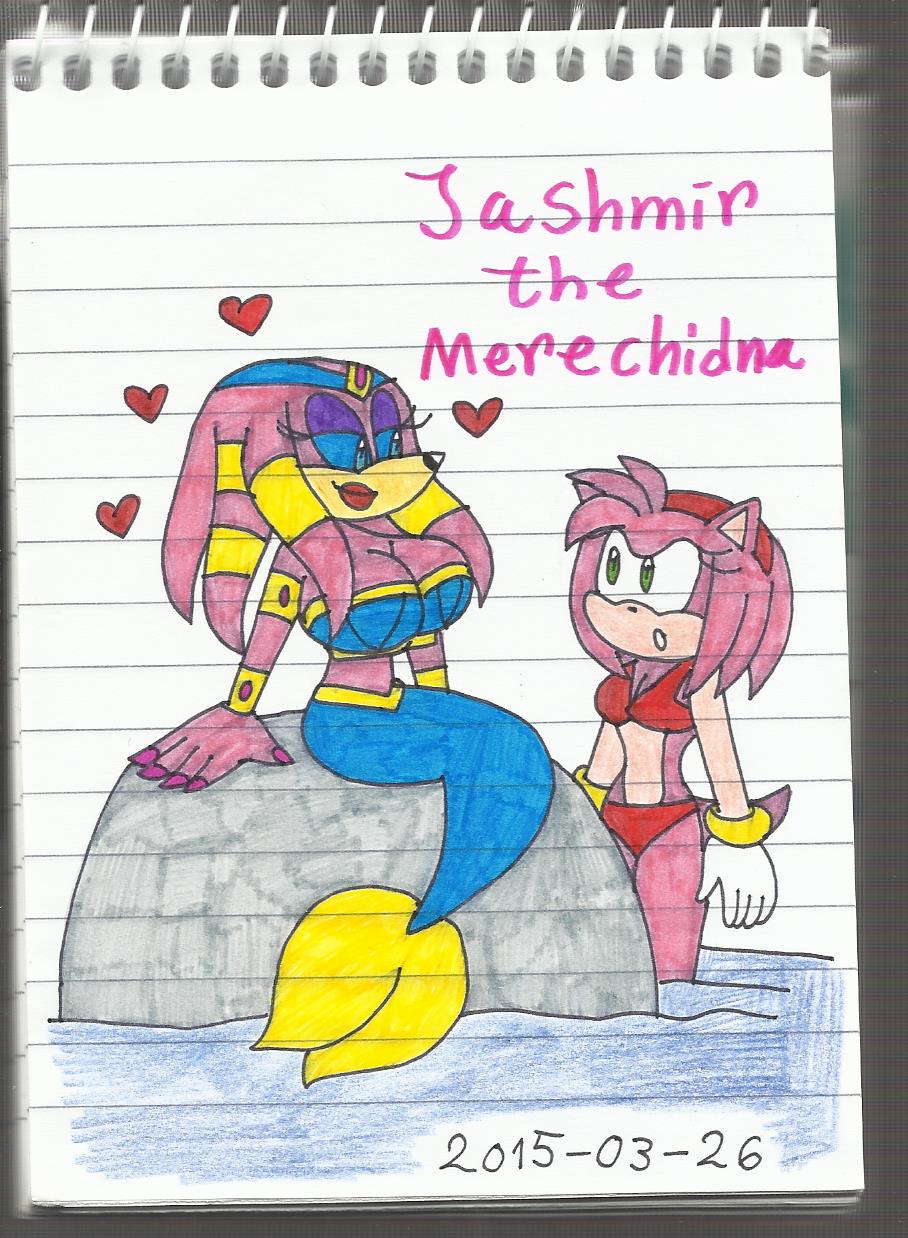 Jashmir
the
Merechidna
2015-03-26